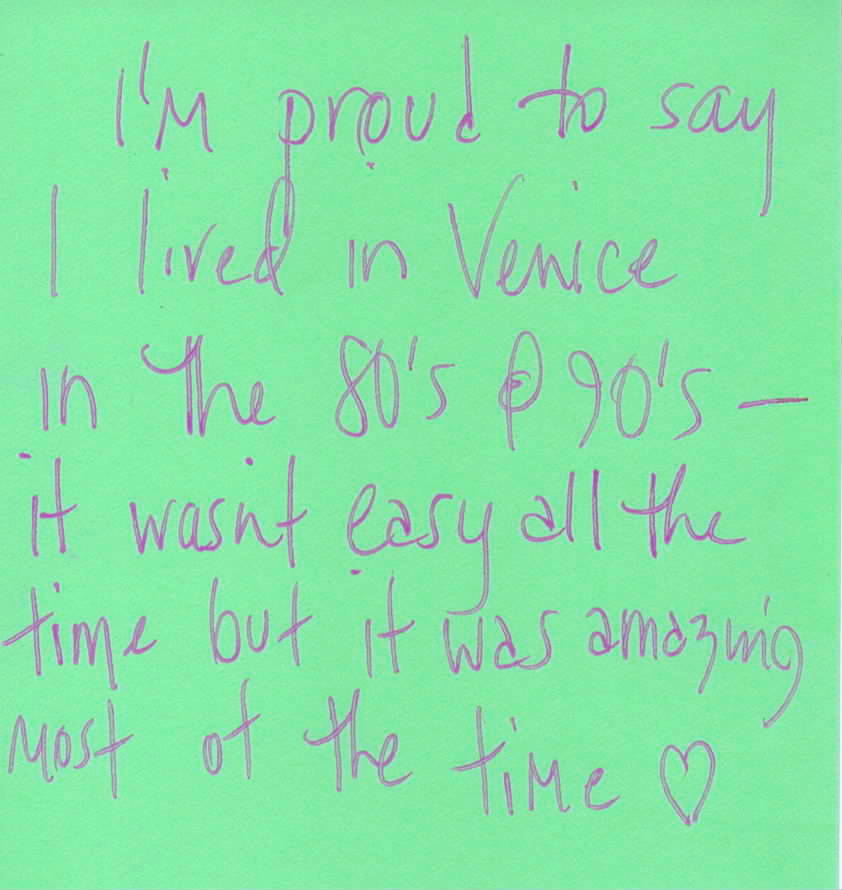 I'm proud to say
I lived in Venice
in the 80's & 90's —
it wasn't easy all the
time but it was amazing
most of the time ♡